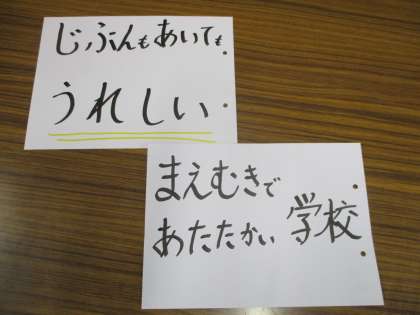 じぶんもあいても
うれしい
まえむきで
あたたかい 学校